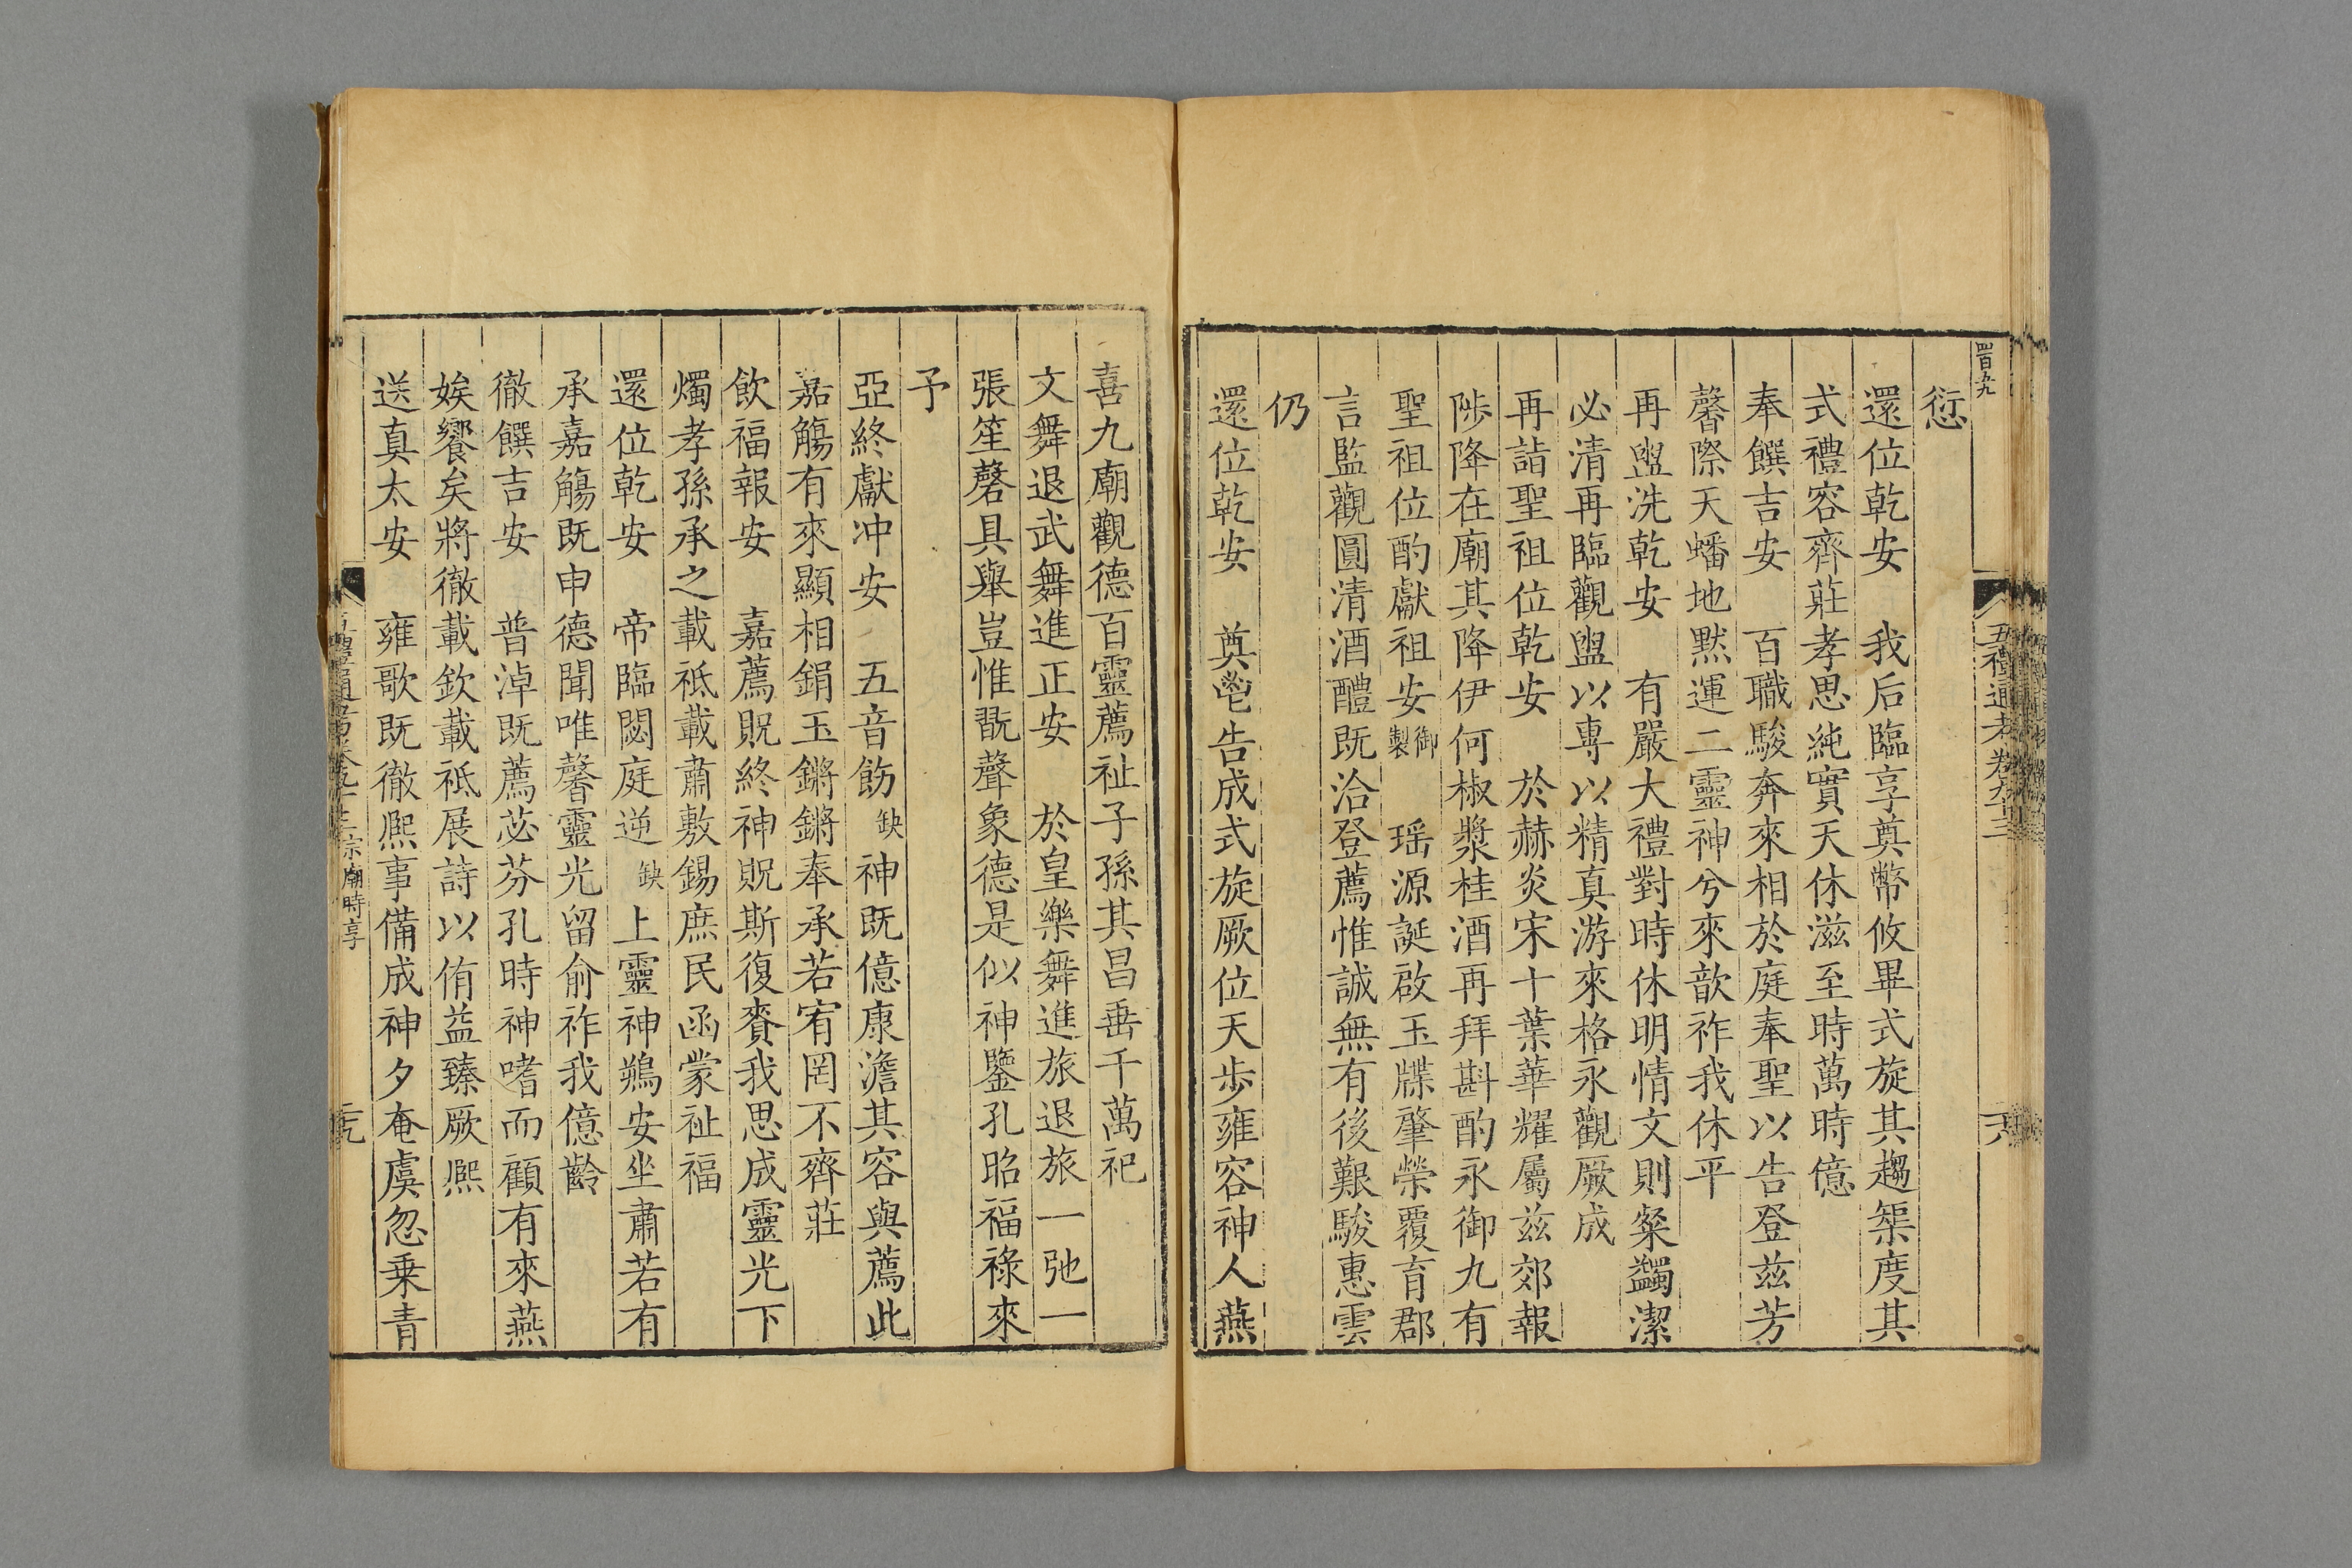 愆
還位乾安　我后臨享奠幣攸畢式旋其趨榘度其
式禮容齊莊孝思純實天休滋至時萬時億
奉饌吉安　百職駿奔來相於庭奉聖以告登兹芳
馨際天蟠地黙運二靈神兮來歆祚我休平
再盥洗乾安　有嚴大禮對時休明情文則粲蠲潔
必清再臨觀盥以專以精真游來格永觀厥成
再詣聖祖位乾安　於赫炎宋十葉華耀屬兹郊報
陟降在廟其降伊何椒漿桂酒再拜斟酌永御九有
聖祖位酌獻祖安御製　瑶源誕啟玉牒肇榮覆育郡
言監觀圓清酒醴既洽登薦惟誠無有後艱駿惠雲
仍
還位乾安　奠鬯告成式旋厥位天步雍容神人燕
喜九廟觀德百靈薦祉子孫其昌垂千萬祀
文舞退武舞進正安　於皇樂舞進旅退旅一弛一
張笙磬具舉豈惟翫聲象德是似神鑒孔昭福祿來
予
亞終獻冲安　五音飭缺神既億康澹其容與薦此
嘉觴有來顯相鋗玉鏘鏘奉承若宥罔不齊莊
飲福報安　嘉薦貺終神貺斯復賚我思成靈光下
燭孝孫承之載祗載肅敷錫庶民函蒙祉福
還位乾安　帝臨閟庭逆缺上靈神鵷安坐肅若有
承嘉觴既申德聞唯馨靈光留俞祚我億齡
徹饌吉安　普淖既薦苾芬孔時神嗜而顧有來燕
娭饗矣將徹載欽載祗展詩以侑益臻厥熙
送真太安　雍歌既徹熙事備成神夕奄虞忽乗青
四百九
五禮通考卷九十三
六
宗廟時享